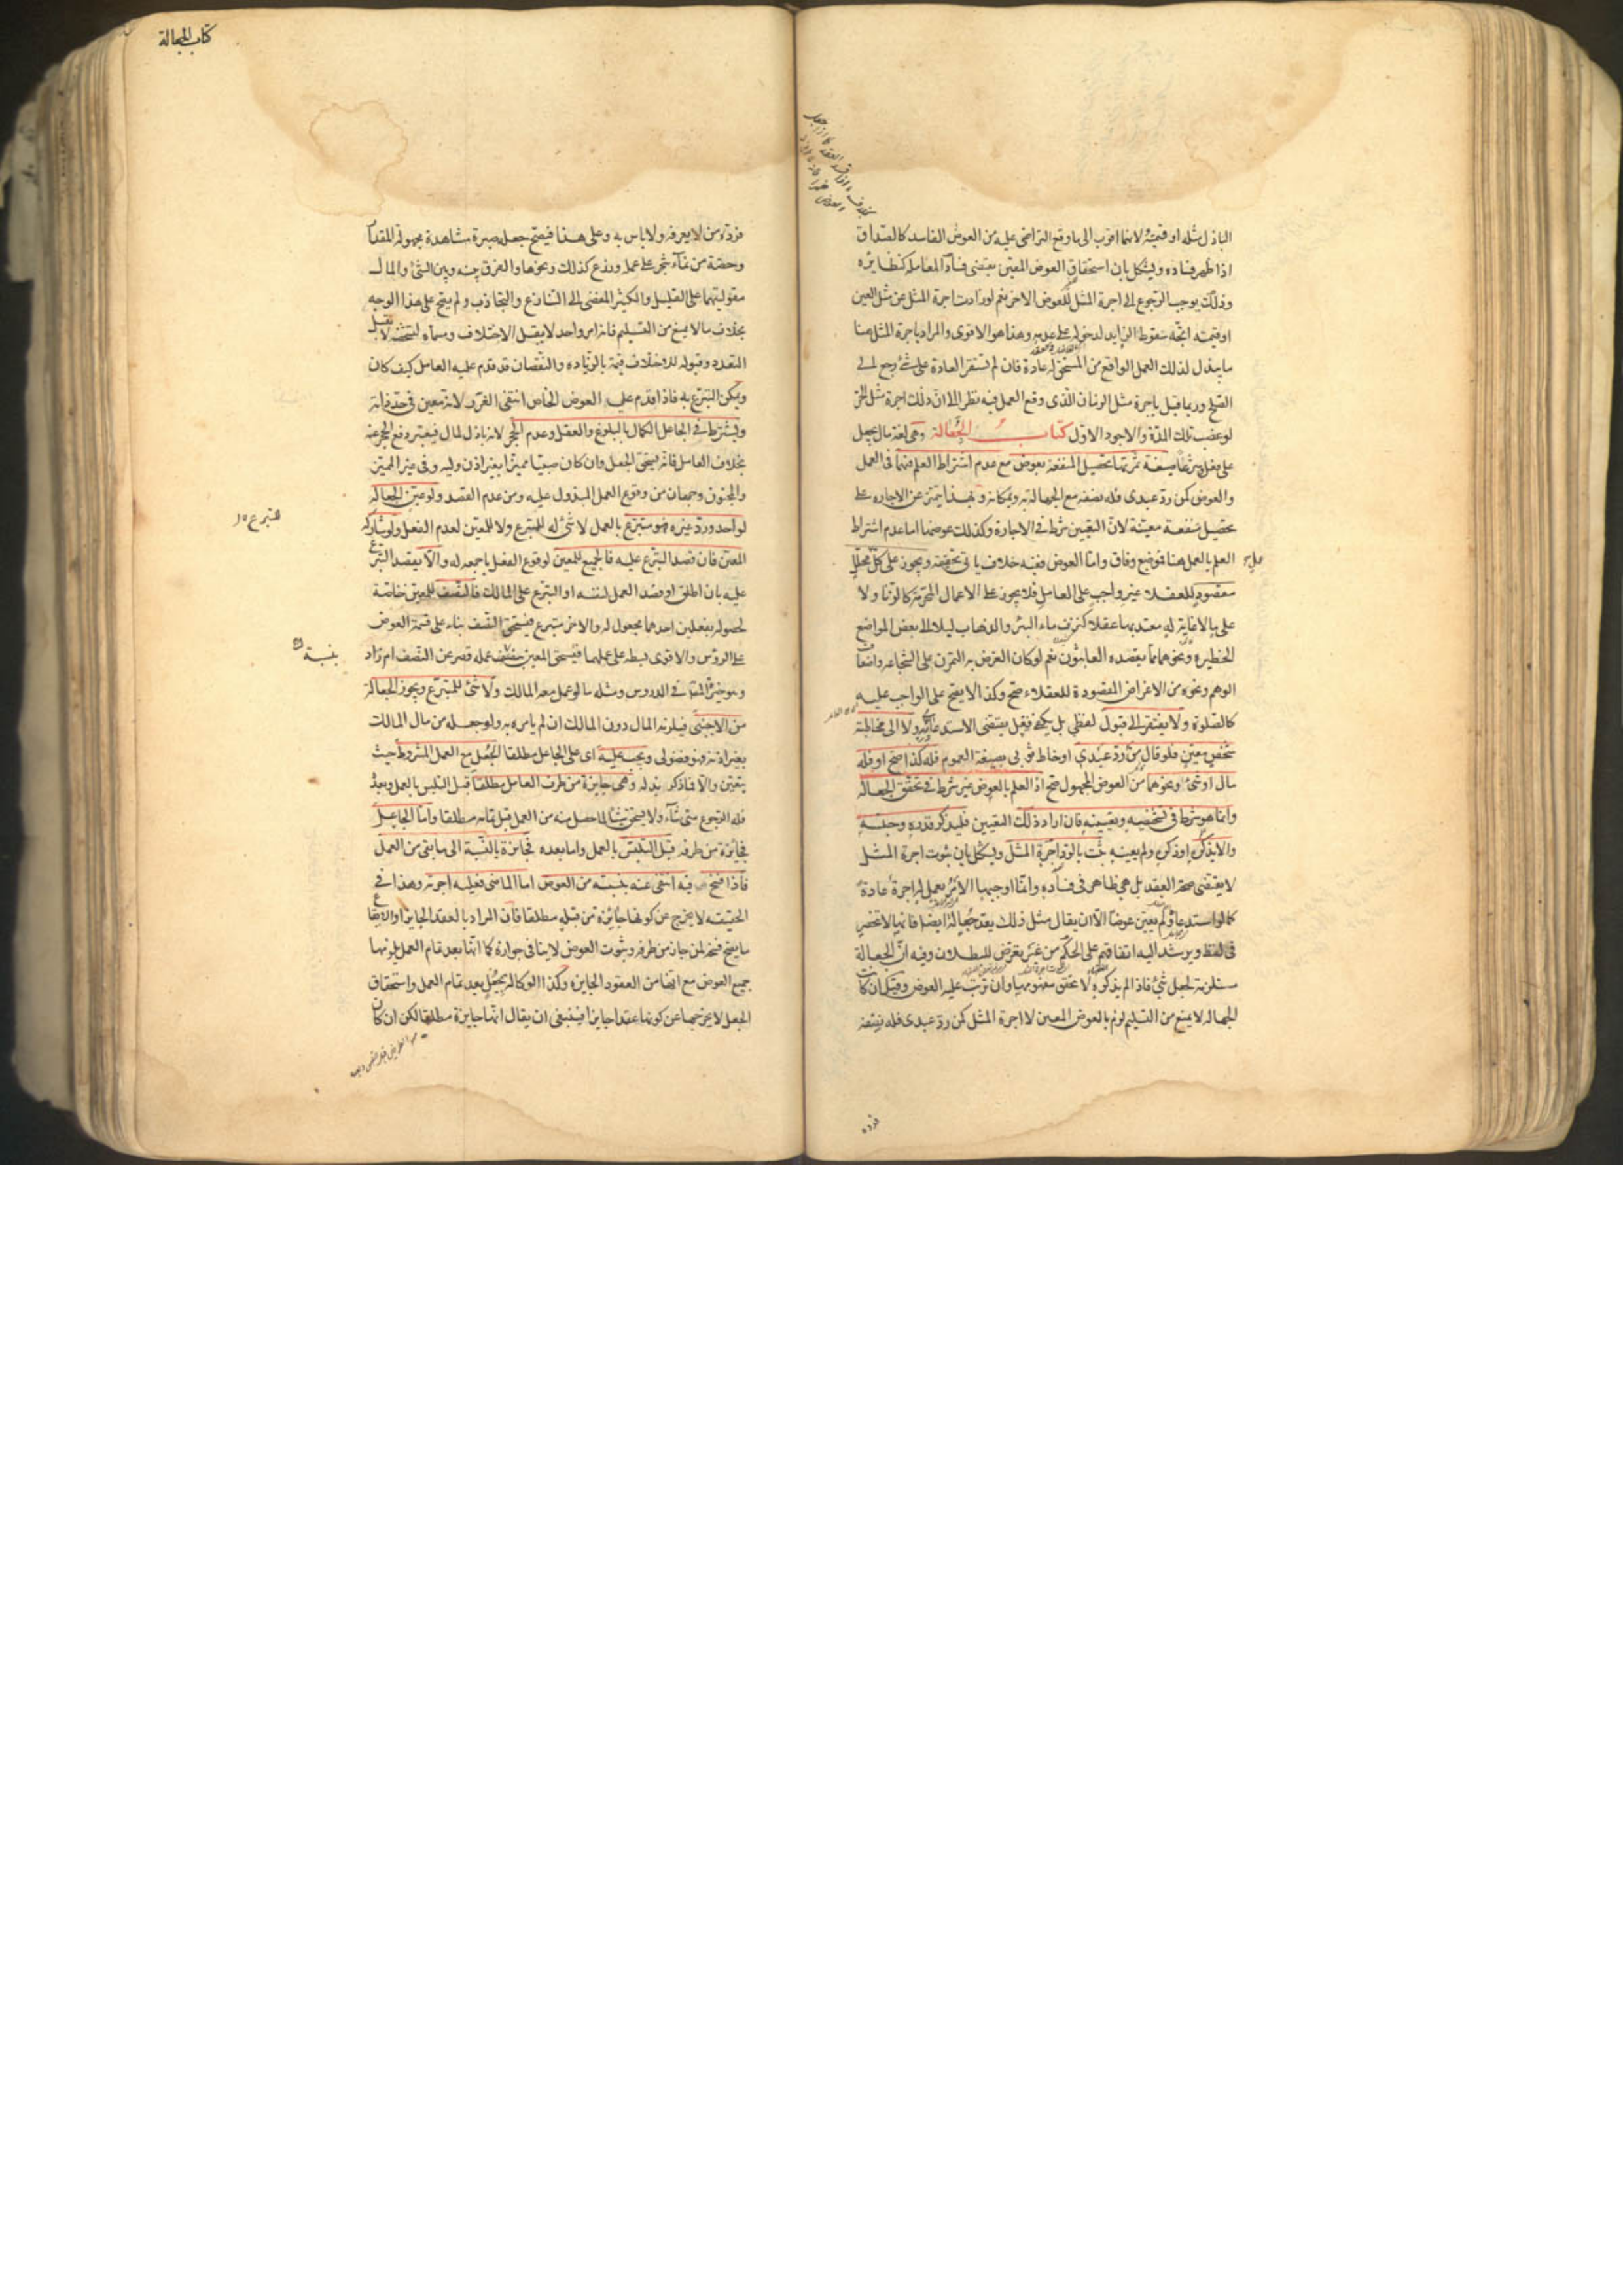 الباذل مثله او قيمته لانهما اقرب الى ما وقع التراضى عليه من العوض الفاسد كالصداق
اذا ظهر فساده ويشكل بان استحقاق العوض المعين يقتضى فساد المعاملة كنظايره
وذلك يوجب الرجوع الى اجرة المثل للعوض الاخر نعم لو زادت اجرة المثل عن مثل العين
او قيمته اتجه سقوط الزايد لدخوله على عدمه وهذا هو الاقوى والمراد باجرة المثل هنا
ما يبذل لذلك العمل الواقع من المستحق له عادة فان لم تستقر العادة على شئ رجع الى
الصلح وربما قيل باجرة مثل الزمان الذى وقع العمل فيه نظرا الى ان ذلك اجرة مثل الحر
لو غصب تلك المدة والاجود الاول كتاب الجُعالة وهى لغة مال يجعل
على فعل وشرعا صيغة ثمرتها تحصيل المنفعة بعوض مع عدم اشتراط العلم فيهما فى العمل
والعوض كمن رد عبدى فله نصفه مع الجهالة به وبمكانه وبهذا يتميز عن الاجارة على
تحصيل منفعة معينة لان التعيين شرط فى الاجارة وكذلك عوضها اما عدم اشتراط
العلم بالعمل هنا فموضع وفاق واما العوض ففيه خلاف ياتى تحقيقه ويجوز على كل عمل محلل
مقصود للعقلاء غير واجب على العامل فلا يجوز على الاعمال المحرمة كالزنا ولا
على ما لا غاية له معتد بها عقلا كنزف ماء البئر والذهاب ليلا الى بعض المواضع
الخطيرة ونحوهما مما يقصده العابثون نعم لو كان الغرض به التمرن على الشجاعة واضعاف
الوهم ونحوه من الاغراض المقصودة للعقلاء صح وكذا لا يصح على الواجب عليه
كالصلوة ولا يفتقر الى قبول لفظى بل يكفى فعل يقتضى الاستدعاء به ولا الى مخاطبة
شخص معين فلو قال من رد عبدى او خاط ثوبى بصيغة العموم فله كذا صح او فله
مال او شئ ونحوهما من العوض المجهول صح اذ العلم بالعوض غير شرط فى تحقق الجعالة
وانما هو شرط فى تشخصه وتعيينه فان اراد ذلك التعيين فليذكر قدره وجنسه
والا يذكر او ذكره ولم يعينه يثبت بالرد اجرة المثل ويشكل بان ثبوت اجرة المثل
لا يقتضى صحة العقد بل هى ظاهر فى فساده وانما اوجبها الامر بعمل له اجرة عادة
كما لو استدعاه ولم يعين عوضا الا ان يقال مثل ذلك يعد جُعالة ايضا فانها لا تنحصر
فى لفظ ويرشد اليه اتفاقهم على الحكم من غير تعرض للبطلان وفيه ان الجعالة
مستلزمة لجعل شئ فاذا لم يذكره لا يتحقق مفهومها وان ترتب عليه العوض وقيل ان كانت
الجهالة لا يمنع من التسليم لزم بالعوض المعين لا اجرة المثل كمن رد عبدى فله نصفه
فرده
كتاب الجعالة
فرده من لا يعرفه ولا باس به وعلى هذا فيصح جعله صبرة مشاهدة مجهولة المقدار
وحصة من نماء شجر على عمل وزرع كذلك ونحوها والفرق بينه وبين الشئ والمال
مقوليتهما على القليل والكثير المفضى الى التنازع والتجاذب ولم يصح على هذا الوجه
بخلاف ما لا يمنع من التسليم فانه امر واحد لا يقبل الاختلاف ومسماه لتشخصه لا يقبل
التعدد وقبوله للاختلاف قيمة بالزيادة والنقصان قد قدم عليه العامل كيف كان
ويمكن التبرع به فاذا اقدم على العوض الخاص انتفى الغرر لانه معين فى حد ذاته
ويشترط فى الجاعل الكمال بالبلوغ والعقل وعدم الحجر لانه باذل لمال فيعتبر رفع الحجر عنه
بخلاف العامل فانه يستحق الجعل وان كان صبيا مميزا بغير اذن وليه وفى غير المميز
والمجنون وجهان من وقوع العمل المبذول عليه ومن عدم القصد ولو عين الجعالة
لواحد ورد غيره فهو متبرع بالعمل لا شئ له للمتبرع ولا للمعين لعدم الفعل ولو شارك
المعين فان قصد التبرع عليه فالجميع للمعين لوقوع الفعل باجمعه له والا يقصد التبرع
عليه بان اطلق او قصد العمل لنفسه او التبرع على المالك فالنصف للمعين خاصة
لحصوله بفعلين احدهما مجعول له والاخر متبرع فيستحق النصف بناء على قسمة العوض
على الرؤس والاقوى بسطه على عملهما فيستحق المعين بنسبة عمله قصر عن النصف ام زاد
وهو خيرة المصنف فى الدروس ومثله ما لو عمل معه المالك ولا شئ للمتبرع ويجوز الجعالة
من الاجنبى فيلزمه المال دون المالك ان لم يامره به ولو جعله من مال المالك
بغير اذنه فهو فضولى ويجب عليه اى على الجاعل مطلقا الجُعل مع العمل المشروط حيث
يتعين والا فما ذكر بدله وهى جايزة من طرف العامل مطلقا قبل التلبس بالعمل وبعده
فله الرجوع متى شاء ولا يستحق شيئا لما حصل منه من العمل قبل تمامه مطلقا واما الجاعل
فجائزة من طرفه قبل التلبس بالعمل واما بعده فجائزة بالنسبة الى ما بقى من العمل
فاذا فسخ فيه انتفى عنه بنسبته من العوض اما الماضى فعليه اجرته وهذا فى
الحقيقة لا يخرج عن كونها جائزة من قبله مطلقا فان المراد بالعقد الجايز او الايقاع
ما يصح فسخه لمن جاز من طرفه وثبوت العوض لا ينافى جوازه كما انها بعد تمام العمل يلزمها
جميع العوض مع انها من العقود الجايزة وكذا الوكالة بجُعل بعد تمام العمل واستحقاق
الجعل لا يخرجها عن كونها عقدا جايزا فينبغى ان يقال انها جايزة مطلقا لكن ان كان